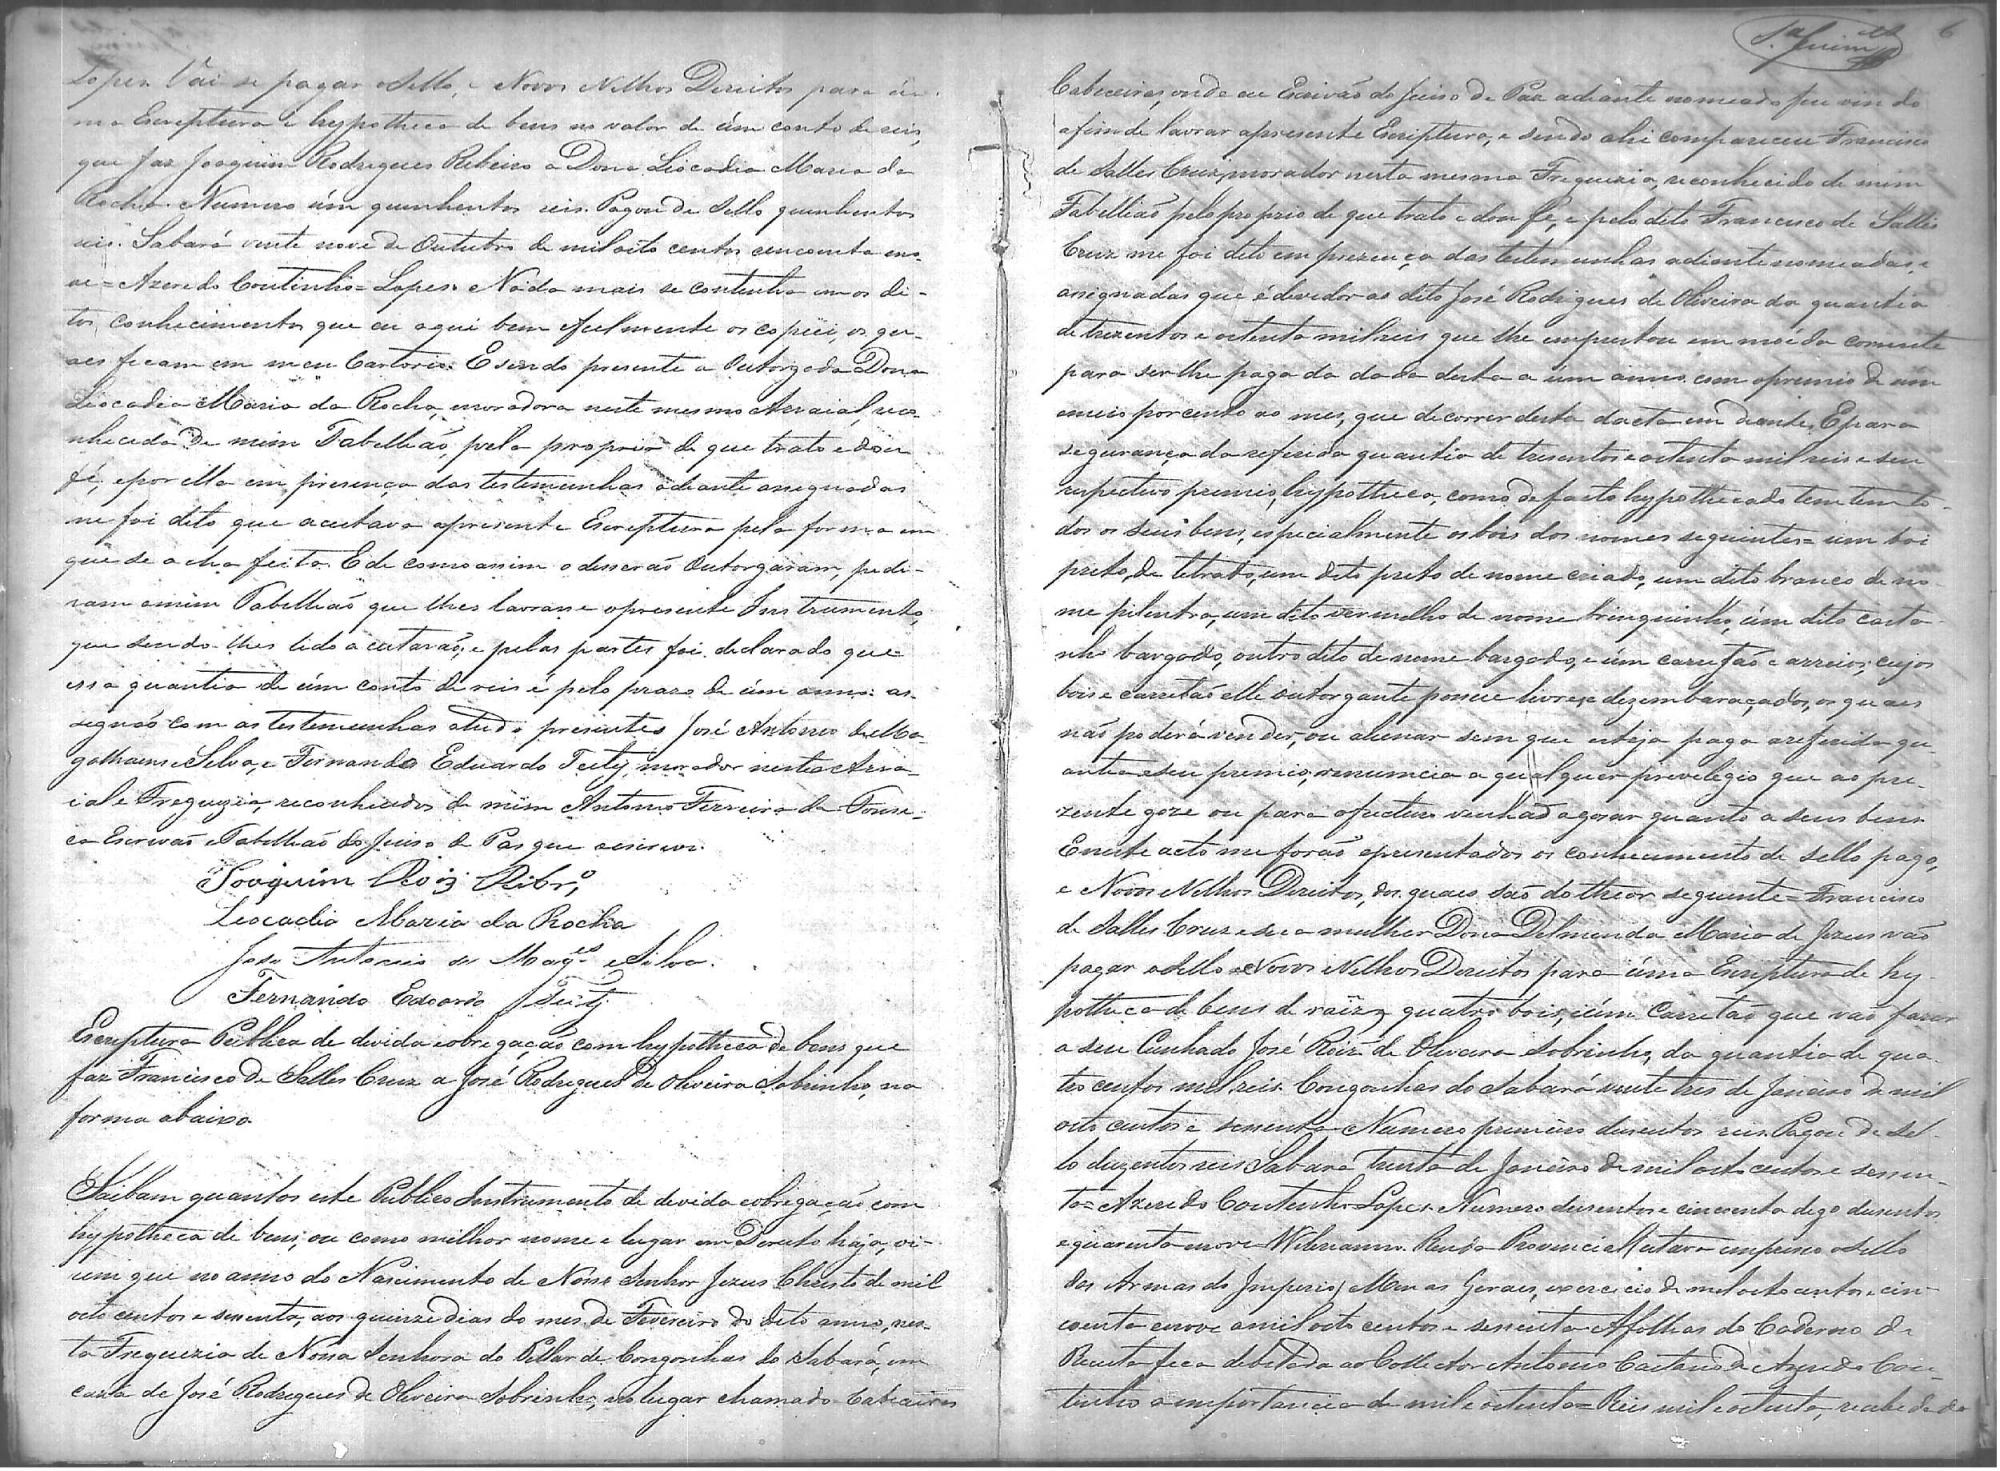 Lopes. Vai se pagar o Sello, e Novos e Velhos Direitos para úu-
ma Escreptura e hypotheca de bens no valor de úm conto de reis,
que faz Joaquim Rodrigues Ribeiro a Dona Leocadia Maria da
Rocha. Numero úm quinhentos reis. Pagou de Sello quinhentos
reis. Sabará vinte nove de Outubro de mil oito centos cincoenta e no-
ve = Azeredo Coutinho = Lopes. Nada mais se continha em os di-
tos conhecimentos que eu aqui bem e fielmente os copiei, os qu-
aes ficam em meu Cartorio. E sendo presente a Outorgada Dona
Leocadia Maria da Rocha, moradora neste mesmo Arraial, reco-
nhecida de mim Tabelliaõ pela propria de que trato e dou
fé, e por ella em presença das testemunhas adiante asegnadas
me foi dito que aceitava apresente Escreptura pela forma em
que se acha feita. E de como assim o disseraõ Outorgaram, pedi-
ram a mim Tabelliaõ que lhes lavrasse apresente Instrumento,
que sendo-lhes lido aceitaraõ, e pelas partes foi declarado que
essa quantia de úm conto de reis é pelo praso de úm anno: as-
segnaõ com as testemunhas a tudo presentes José Antonio de Ma-
galhaens e Silva, e Fernando Eduardo, morador nesta Arra-
ial e Freguezia, reconhecidos de mim Antonio Ferreira da Fonse-
ca Escrivaõ e Tabelliaõ do Juiso de Paz que escrevi.
Joaquim Roiz Ribrº
Leocadia Maria da Rocha
Jose Antonio de Mages e Silva.
Fernando Edoardo
Escreptura Publica de devida e obregaçaõ com hypotheca de bens que
faz Francisco de Salles Cruz a José Rodrigues de Oliveira Sobrinho, na
forma abaixo.
Saibam quantos este Publico Instrumento de devida e obregaçaõ com
hypotheca de bens, ou como milhor nome e lugar em Dereito haja, vi-
rem que no anno do Nascimento de Nosso Senhor Jezus Christo de mil
oito centos e sessenta, aos quinze dias do mes de Fevereiro do dito anno, nes-
ta Freguezia de Nossa Senhora do Pillar de Congonhas do Sabará, em
casa de José Rodrigues de Oliveira Sobrinho, no lugar chamado Cabeceiras
6
Cabeceiras, onde eu Escrivão do Juiso de Paz adiante nomeado fui vindo
afim de lavrar apresente Escriptura, e sendo ahi compareceu Francisco
de Salles Cruz, morador nesta mesma Freguezia, reconhecido de mim
Tabelliaõ pelo proprio de que trato e dou fé, e pelo dito Francisco de Salles
Cruz me foi dito em prezença das testemunhas adiante nomeadas, e
asignadas que é devidor ao dito José Rodrigues de Oliveira da quantia
de trezentos e oitenta mil reis que lhe emprestou em moéda corrente
para ser lhe paga da data desta a úm anno com o premio de um
e meio por cento ao mes, que decorrer desta dacta em deante. E para
segurança da referida quantia de tresentos e oitenta mil reis e seu
respectivo premio, hypotheca, como de facto hypothecado tem to-
dos os seus bens, especialmente os bois dos nomes seguintes = um boi
preto, de retrato, um dito preto de nome criado, um dito branco de no-
me pilentra, um dito vermelho de nome brinquinho, úm dito casta-
nho bargado, outro dito de nome bargado, e úm carretaõ e arreios, cujos
bois e carretaõ elle outorgante possue livres e dezembaraçados, os quaes
não poderá vender, ou alienar sem que esteja paga a referida qu-
antia e seu premio, renuncia a qualquer previlegio que ao pre-
zente goze ou para o futuro venha a gosar quanto a seus bens.
E neste acto me foraõ apresentados os conhecimentos de sello pago,
e Novos e Velhos Direitos, dos quaes saõ do theor seguinte = Francisco
de Salles Cruz e sua mulher Dona Delmenda Maria de Jezus vaõ
pagar o Sello e Novos e Velhos Direitos para úma Escreptura de hy-
potheca de bens de raïz, quatro bois, e úm Carretaõ que vaõ fazer
a seu Cunhado José Roiz de Oliveira Sobrinho, da quantia de qua-
tro centos mil reis. Congonhas do Sabará vinte tres de Janeiro de mil
oito centos e sessenta. Numero primeiro duzentos reis. Pagou de Sel-
lo duzentos reis. Sabará trinta de Janeiro de mil oito centos e sessen-
ta = Azeredo Coutinho = Lopes. Numero duzentos e cincoenta digo duzentos
e quarenta e nove. Renda Provincial estava impresso o sello
das Armas do Imperio / Minas Geraes, exercicio de mil oito centos e cin-
coenta e nove a mil oito centos e sessenta. A folhas do Caderno de
Receita fica debitada ao Collector Antonio Caetano de Azeredo Cou-
tinho a importancia de mil e oitenta = Reis mil e oitenta, recebida do